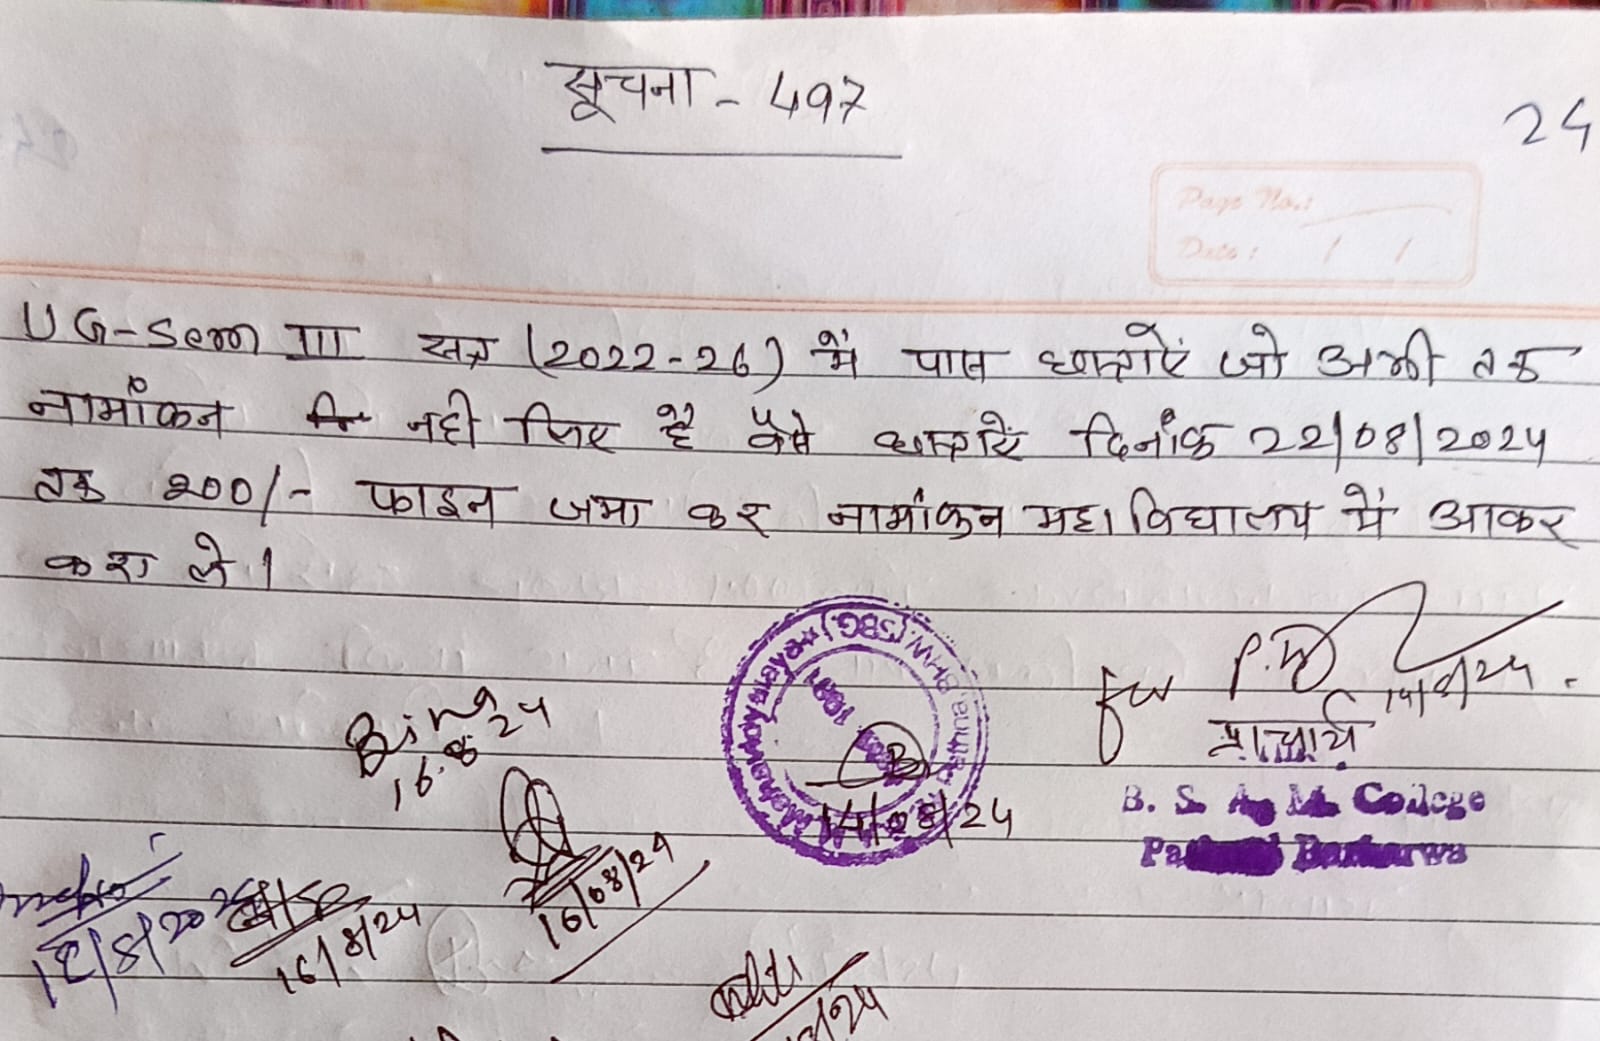 सूचना - 497
24
Page No.:
Date: / /
UG-Sem III सत्र (2022-26) में पास छात्राएं जो अभी तक
नामांकन नही लिए है वैसे छात्राएं दिनांक 22/08/2024
तक 200/- फाइन जमा कर नामांकन महाविद्यालय में आकर
करा ले।
for
14/8/24.
प्राचार्य
B. S. A. M. College
Barharwa
Mahavidyalaya ★ (SBG.)
B
14/08/24
16.8.24
16/08/24
16/8/24